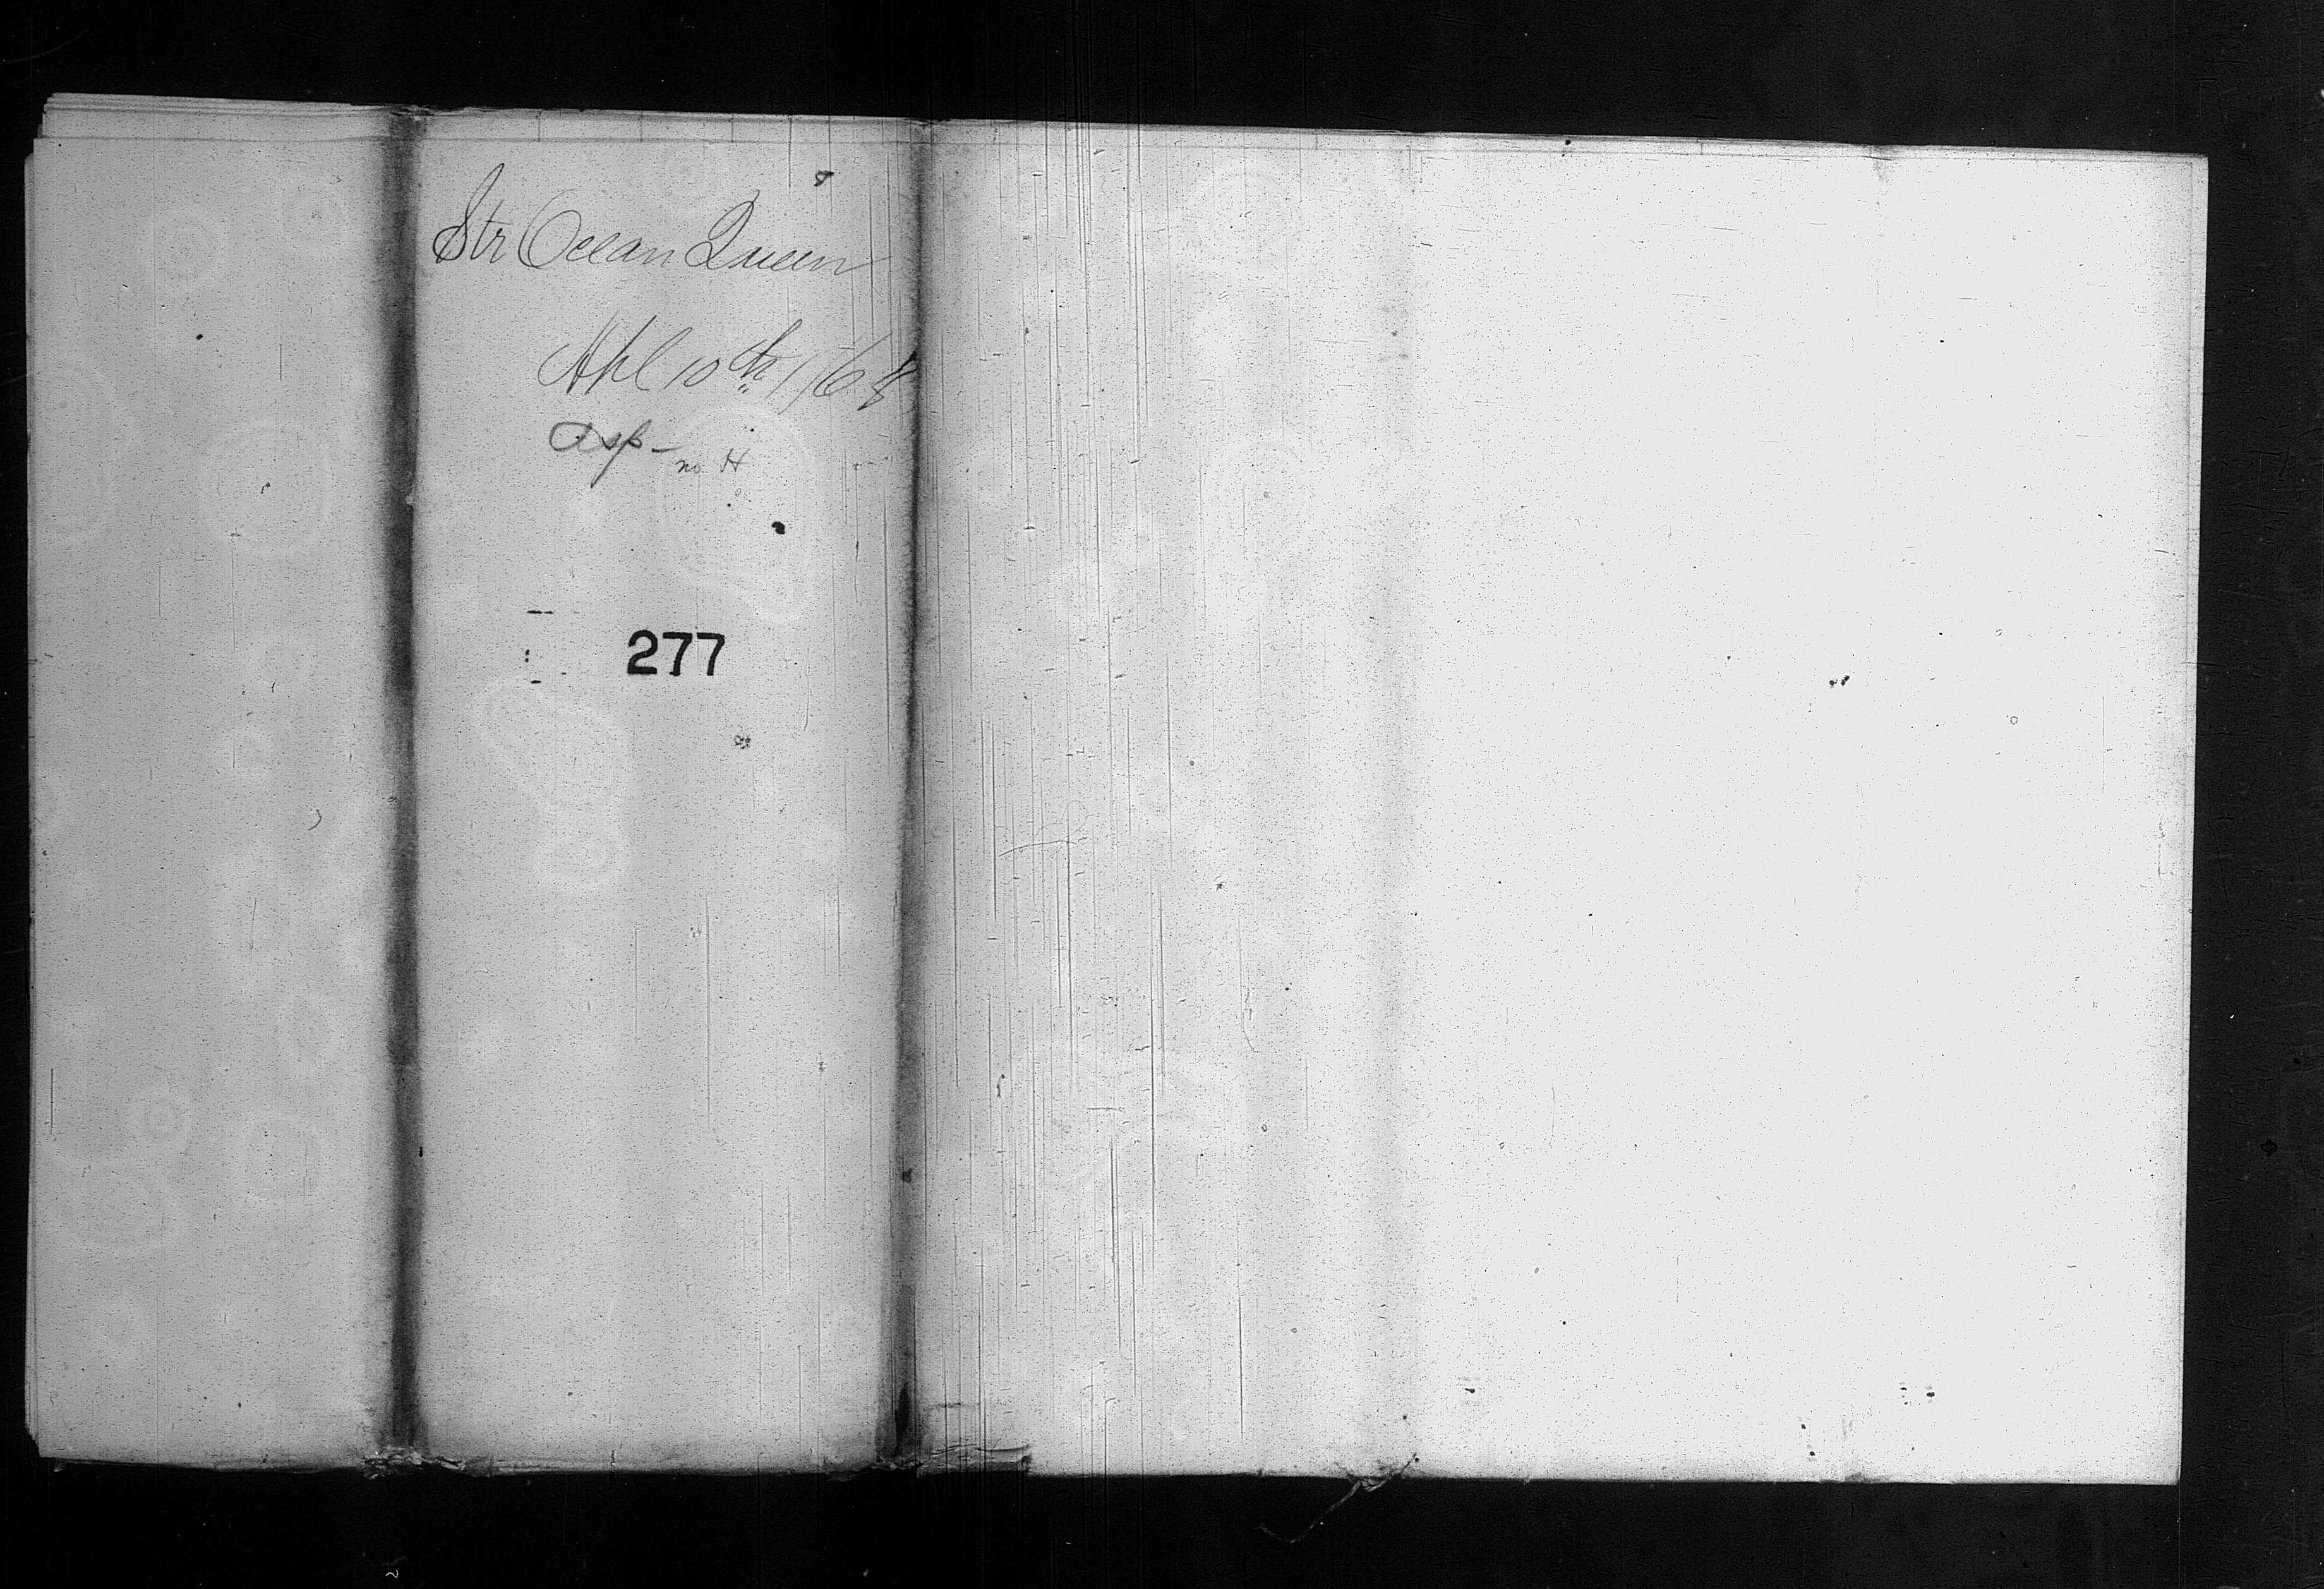 Str Ocean Queen
Apl 10th 1868
Asp - no. H
277